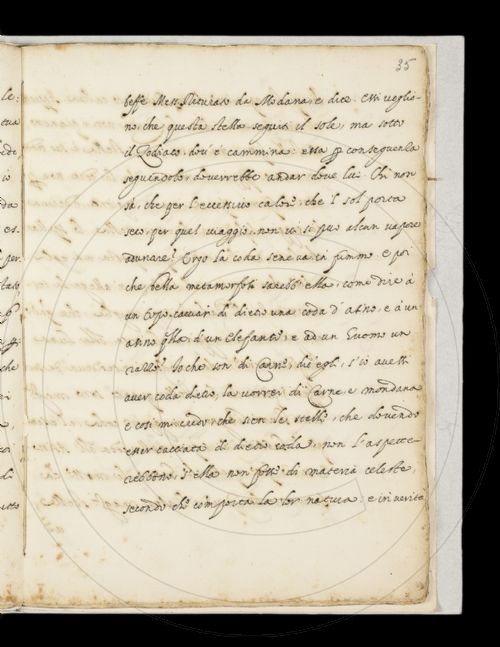 35
beffe Mess. Pituraso da Modana, e dice. Essi voglio-
no, che questa stella seguiti il sole, ma sotto
il Zodiaco, dov' è cammina: essa per conseguenza
seguendolo, doverrebbe andar dove lui. Chi non
sà, che per l'eccessivo calore, che 'l sol porta
seco, per quel viaggio, non vi si può alcun vapore
aunare? Ergo la coda sene va in fummo. e poi
che bella metamorfosi sarebb' ella, come dire à
un Orso cacciar di dietro una coda d' asino, e à un
asino q.lla d'un elefante, e ad un Huomo un
razzo? Io che son di Carne, dic' egli, s'io avessi
aver coda dietro, la vorrei di Carne, e mondana
e così mi credo, che sien le stelle, che dovendo
esser cacciata di dietro coda, non l'aspette-
rebbono, s'ella non fosse di materia celeste,
secondo che comporta la lor natura: e in verità